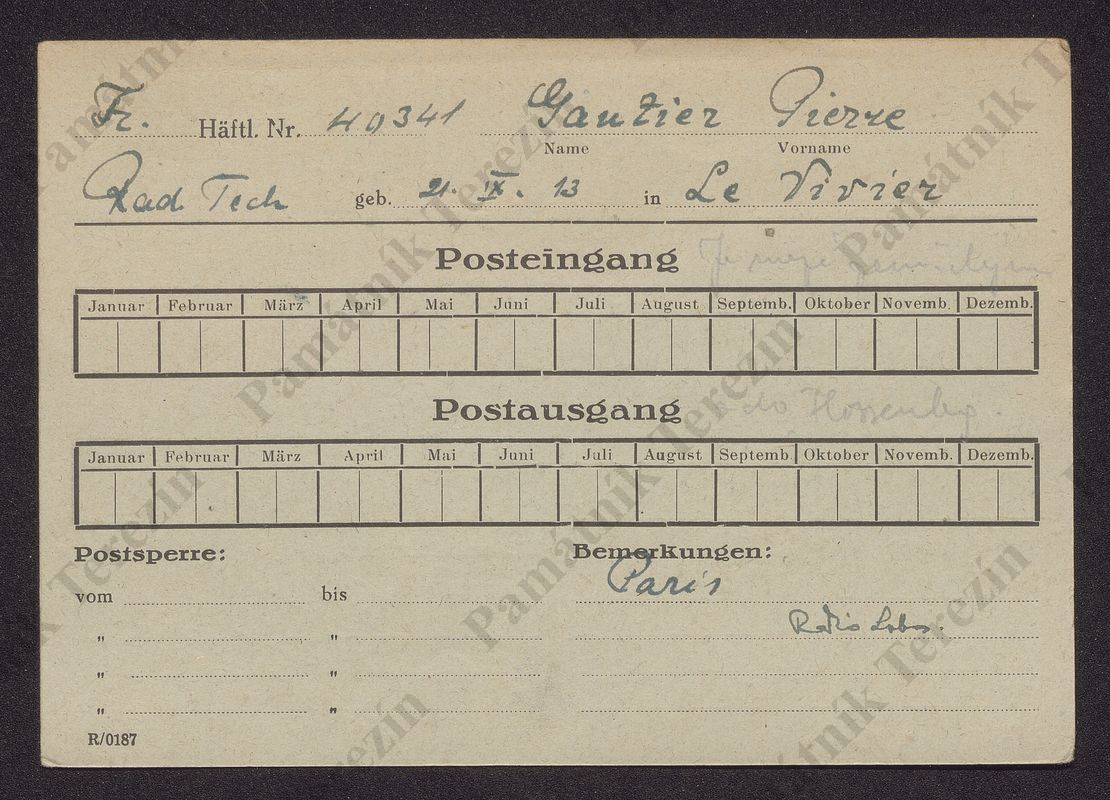 Fr. Häftl. Nr. 40341 Gautier Pierre
Name Vorname
Rad Tech geb. 21. IX. 13 in Le Vivier
Posteingang
Januar Februar März April Mai Juni Juli August Septemb. Oktober Novemb. Dezemb.
Postausgang
Januar Februar März April Mai Juni Juli August Septemb. Oktober Novemb. Dezemb.
Postsperre: Bemerkungen:
vom bis Paris
" " Radio
" "
" "
R/0187
Památník Terezín